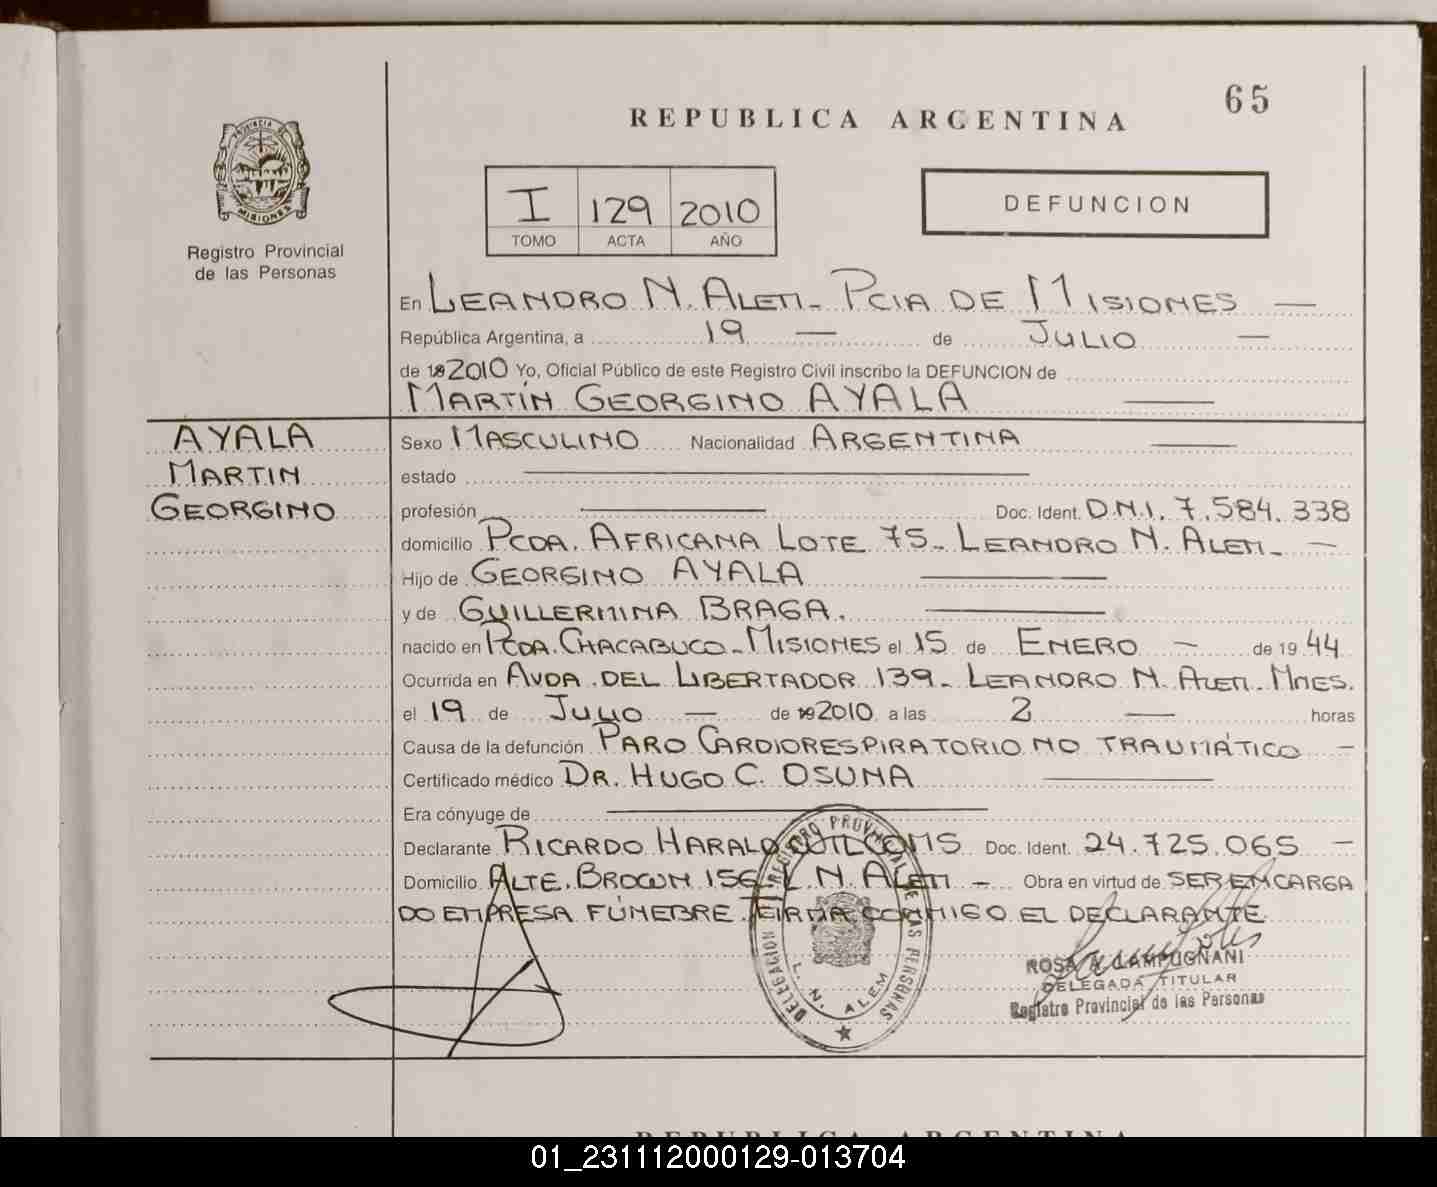 65
REPUBLICA ARGENTINA
PROVINCIA DE
MISIONES
Registro Provincial
de las Personas
I 129 2010
TOMO ACTA AÑO
DEFUNCION
En LEANDRO N. ALEM - PCIA DE MISIONES —
República Argentina, a 19 — de JULIO —
de 2010 Yo, Oficial Público de este Registro Civil inscribo la DEFUNCION de
MARTÍN GEORGINO AYALA —
AYALA
MARTIN
GEORGINO
Sexo MASCULINO Nacionalidad ARGENTINA —
estado —
profesión — Doc. Ident. D.N.I. 7.584.338
domicilio PCDA. AFRICANA LOTE 75 - LEANDRO N. ALEM - —
Hijo de GEORGINO AYALA —
y de GUILLERMINA BRAGA. —
nacido en PCDA. CHACABUCO - MISIONES el 15 de ENERO — de 19 44
Ocurrida en AVDA. DEL LIBERTADOR 139 - LEANDRO N. ALEM - MNES.
el 19 de JULIO — de 2010 a las 2 — horas
Causa de la defunción PARO CARDIORESPIRATORIO NO TRAUMÁTICO —
Certificado médico DR. HUGO C. OSUNA —
Era cónyuge de —
Declarante RICARDO HARALD Doc. Ident. 24.725.065 —
Domicilio ALTE. BROWN 156 L. N. ALEM — Obra en virtud de SER ENCARGA
DO EMPRESA FÚNEBRE. FIRMA CONMIGO EL DECLARANTE
DELEGACION REGISTRO PROVINCIAL DE LAS PERSONAS
L. N. ALEM
ROSA CAMPUGNANI
DELEGADA TITULAR
Registro Provincial de las Personas
REPUBLICA ARGENTINA
01_231112000129-013704